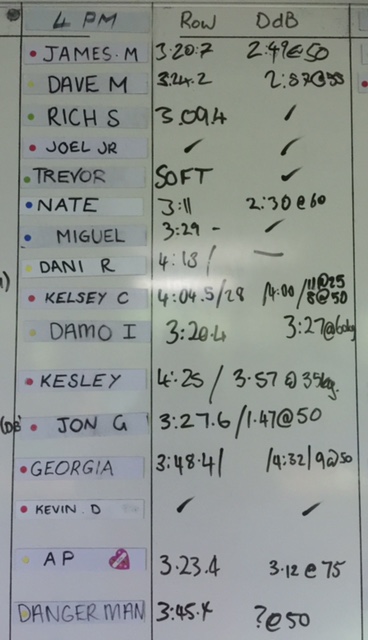 4 PM Row DdB
JAMES. M 3:20.7 2:49@50
DAVE M 3:24.2 2:57@55
RICH S 3.09.4 ✓
JOEL JR ✓ ✓
TREVOR SOFT ✓
NATE 3:11 2:30@60
MIGUEL 3:29 - ✓
DANI R 4:13/ —
KELSEY C 4:04.5/28 /4:00/11@25
8@50
DAMO I 3:20.4 3:27@60kg
KESLEY 4:25 / 3.57@35kg.
JON G 3:27.6/1.47@50
GEORGIA 3:48.4/ /4:32/9@50
KEVIN. D ✓ ✓
AP 3.23.4 3.12@75
DANGERMAN 3:45. ?@50